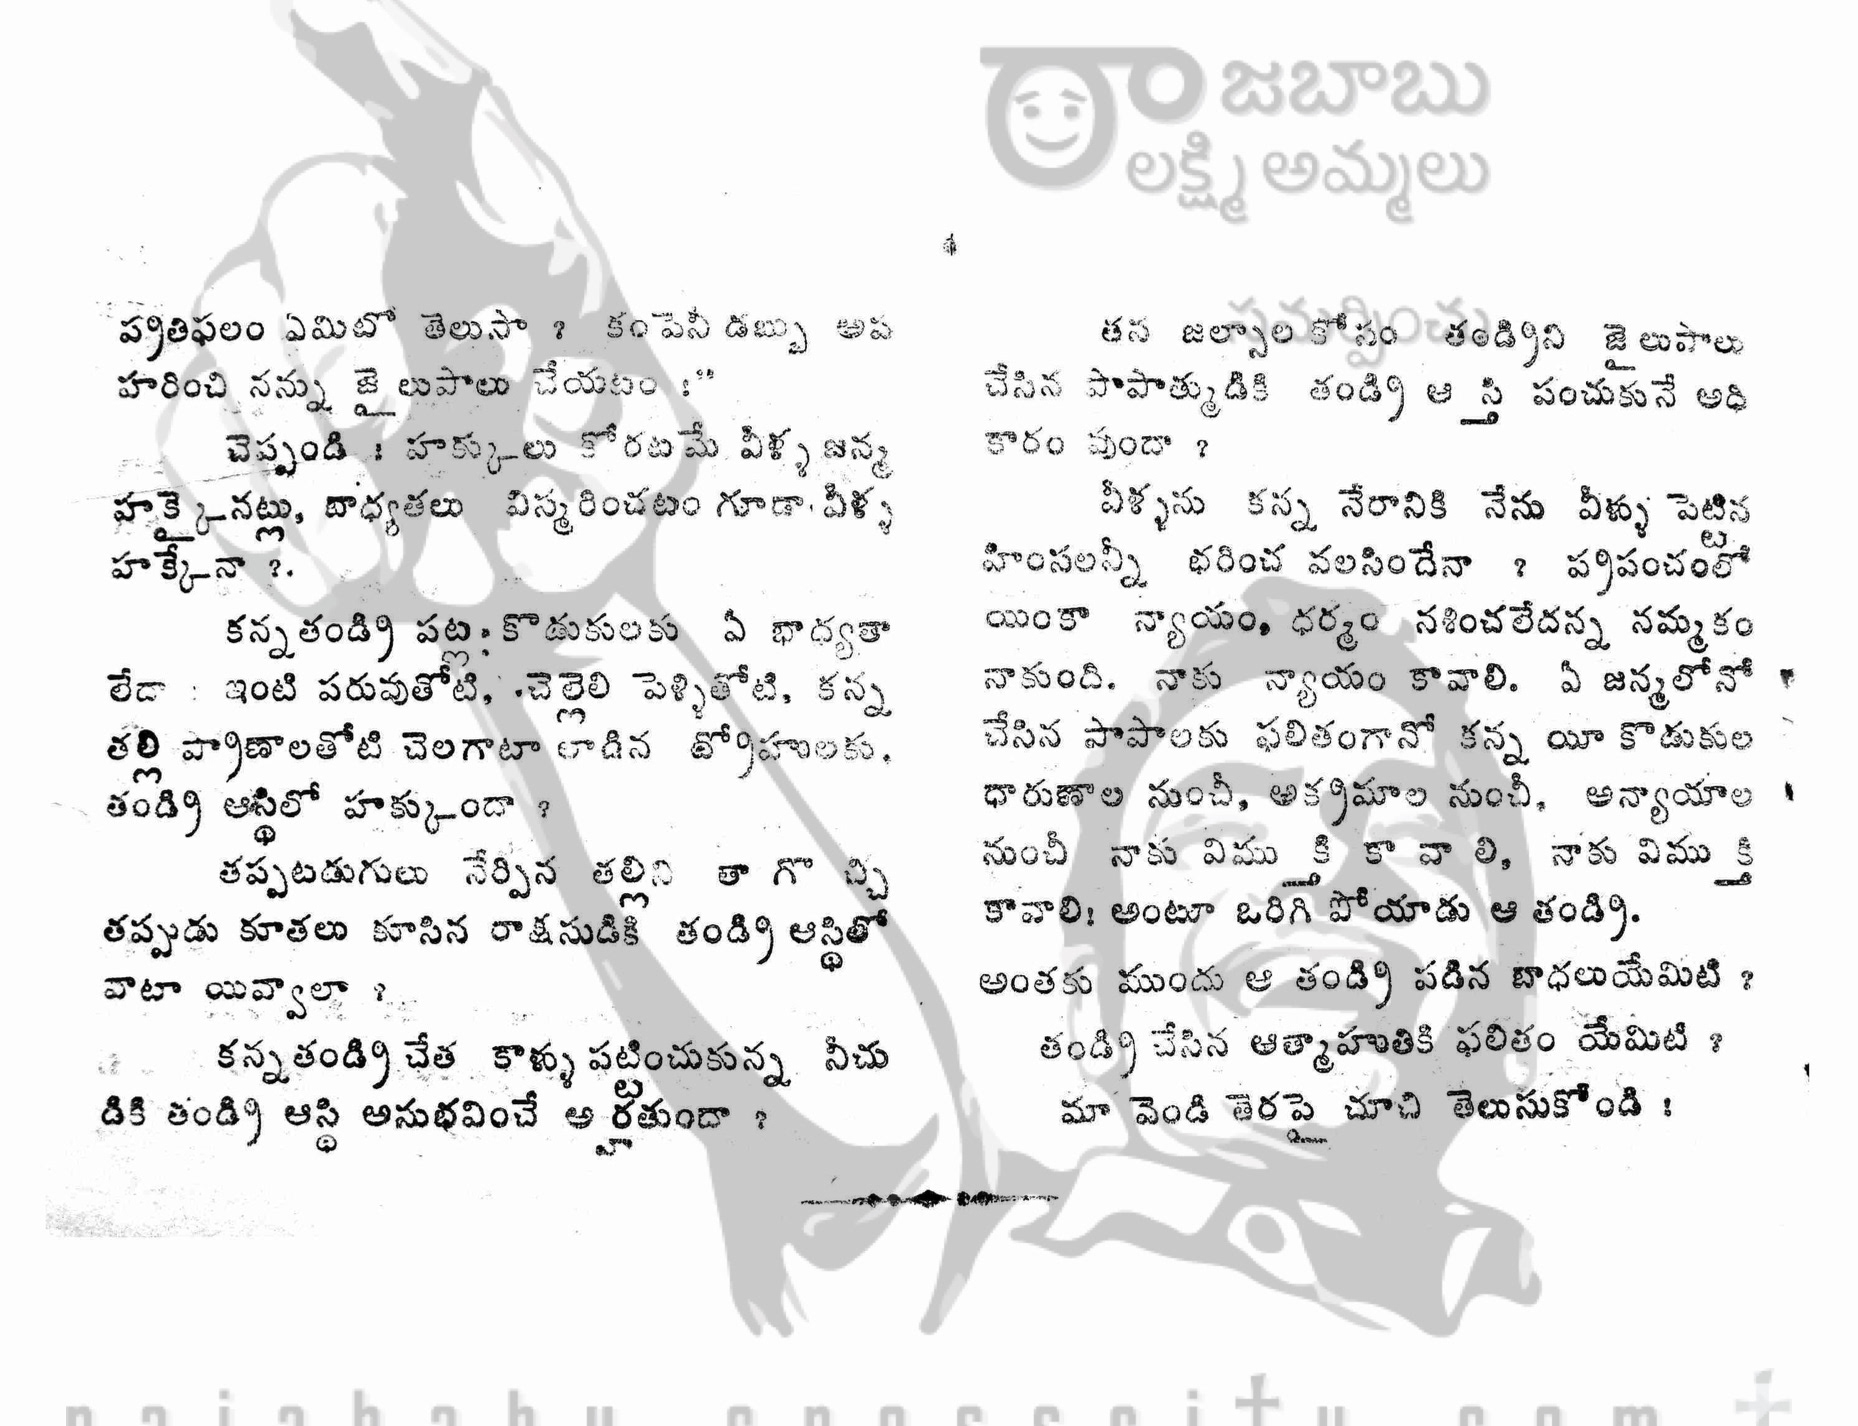 రాజబాబు
లక్ష్మి అమ్మలు
సమర్పించు
ప్రతిఫలం ఏమిటో తెలుసా ? కంపెనీ డబ్బు అప
హరించి నన్ను జైలుపాలు చేయటం !”
చెప్పండి ! హక్కులు కోరటమే వీళ్ళ జన్మ
హక్కైనట్లు, బాధ్యతలు విస్మరించటం గూడా వీళ్ళ
హక్కేనా ?.
కన్నతండ్రి పట్ల కొడుకులకు ఏ భాధ్యతా
లేదా : ఇంటి పరువుతోటి, చెల్లెలి పెళ్ళితోటి, కన్న
తల్లి ప్రాణాలతోటి చెలగాటా లాడిన ద్రోహులకు,
తండ్రి ఆస్థిలో హక్కుందా ?
తప్పటడుగులు నేర్పిన తల్లిని తా గొ చ్చి
తప్పుడు కూతలు కూసిన రాక్షసుడికి తండ్రి ఆస్థిలో
వాటా యివ్వాలా ?
కన్నతండ్రి చేత కాళ్ళు పట్టించుకున్న నీచు
డికి తండ్రి ఆస్థి అనుభవించే అర్హతుందా ?
తన జల్సాల కోసం తండ్రిని జైలుపాలు
చేసిన పాపాత్ముడికి తండ్రి ఆ స్తి పంచుకునే అధి
కారం వుందా ?
వీళ్ళను కన్న నేరానికి నేను వీళ్ళు పెట్టిన
హింసలన్నీ భరించ వలసిందేనా ? ప్రపంచంలో
యింకా న్యాయం, ధర్మం నశించలేదన్న నమ్మకం
నాకుంది. నాకు న్యాయం కావాలి. ఏ జన్మలోనో
చేసిన పాపాలకు ఫలితంగానో కన్న యీ కొడుకుల
ధారుణాల నుంచీ, అక్రమాల నుంచీ, అన్యాయాల
నుంచీ నాకు విము క్తి కా వా లి, నాకు విము క్తి
కావాలి! అంటూ ఒరిగి పోయాడు ఆ తండ్రి.
అంతకు ముందు ఆ తండ్రి పడిన బాధలుయేమిటి ?
తండ్రి చేసిన ఆత్మాహుతికి ఫలితం యేమిటి ?
మా వెండి తెరపై చూచి తెలుసుకోండి !